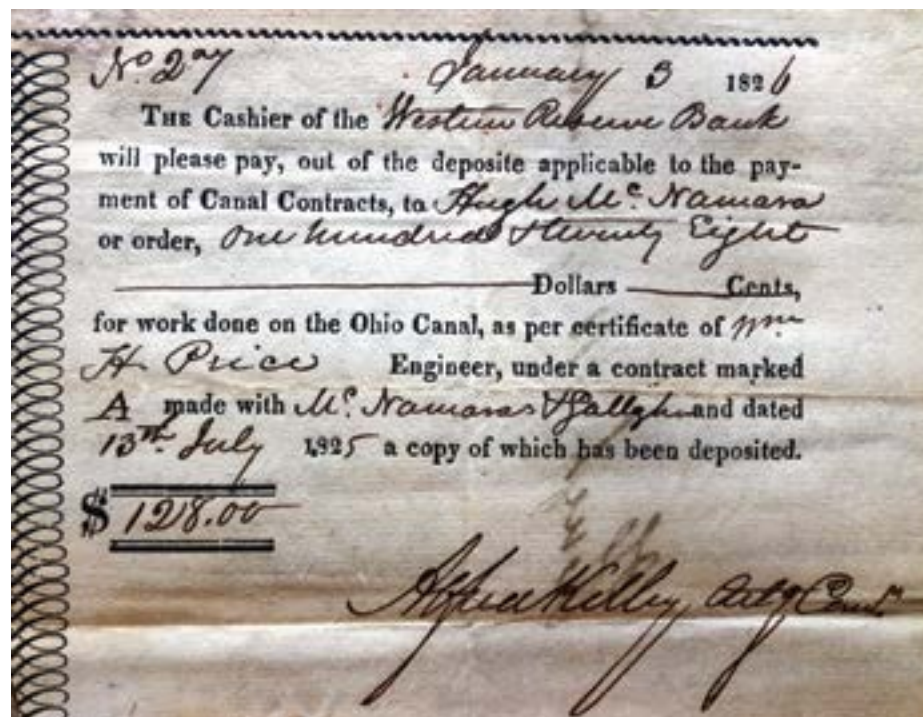 No. 27 January 3 1826
THE Cashier of the Western Reserve Bank
will please pay, out of the deposite applicable to the pay-
ment of Canal Contracts, to Hugh Mc. Namara
or order, One hundred & twenty Eight
Dollars Cents,
for work done on the Ohio Canal, as per certificate of Wm
H. Price Engineer, under a contract marked
A made with Mc. Namaras & and dated
13th July 1825 a copy of which has been deposited.
$ 128.00
Alfred Kelley Actg Comr.